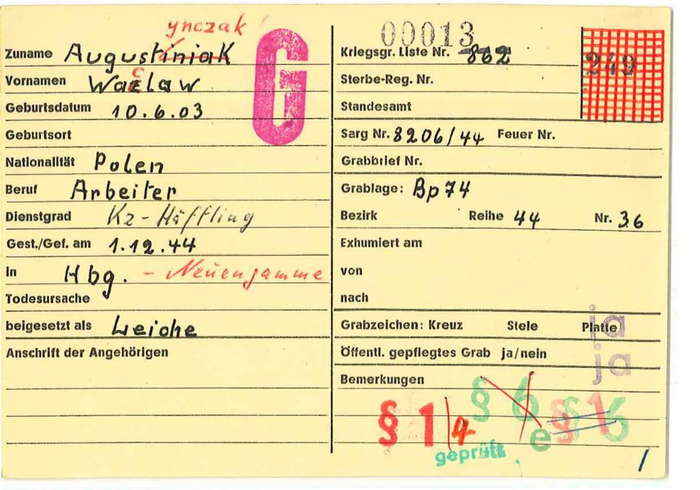 ynczak
Zuname Augustiniak
Vornamen Wacław
Geburtsdatum 10.6.03
Geburtsort
Nationalität Polen
Beruf Arbeiter
Dienstgrad Kz-Häftling
Gest./Gef. am 1.12.44
in Hbg. - Neuengamme
Todesursache
beigesetzt als Leiche
Anschrift der Angehörigen
G
00013
Kriegsgr. Liste Nr. 862
249
Sterbe-Reg. Nr.
Standesamt
Sarg Nr. 8206/44 Feuer Nr.
Grabbrief Nr.
Grablage: Bp74
Bezirk Reihe 44 Nr. 36
Exhumiert am
von
nach
Grabzeichen: Kreuz Stele Platte ja
Öffentl. gepflegtes Grab ja/nein ja
Bemerkungen
§ 1/4 § 6 e § 1 § 6
geprüft